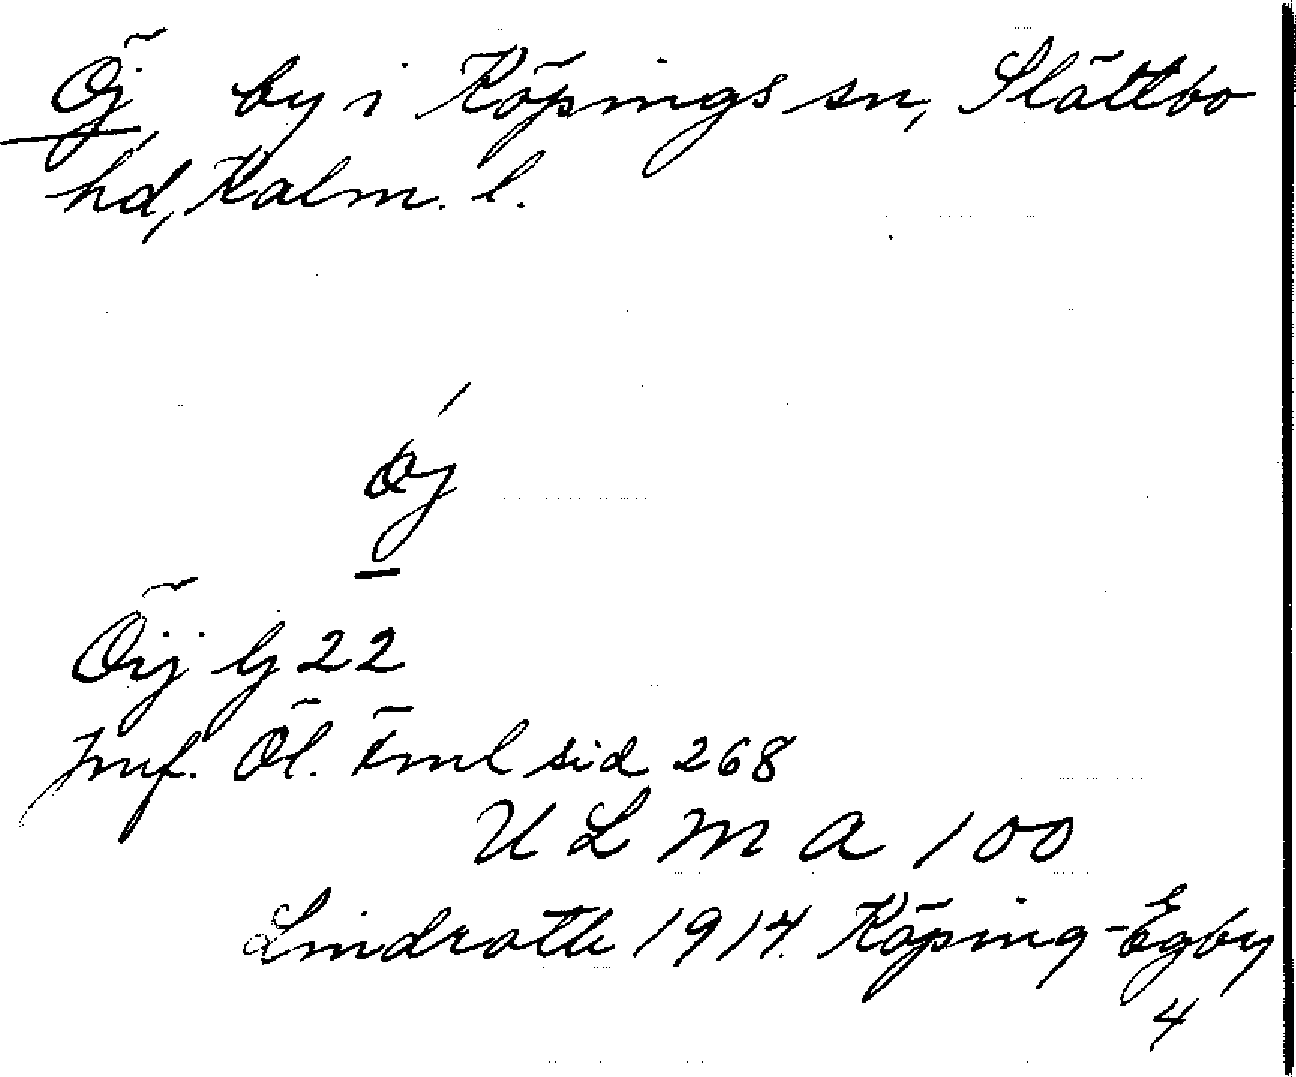 Öj, by i Köpings sn, Slättbo
hd, Kalm. l.
öj
Öij Gj 22
Jmf. Öl. Fml sid 268
U L M A 100
Lindroth 1914. Köping-Egby
4